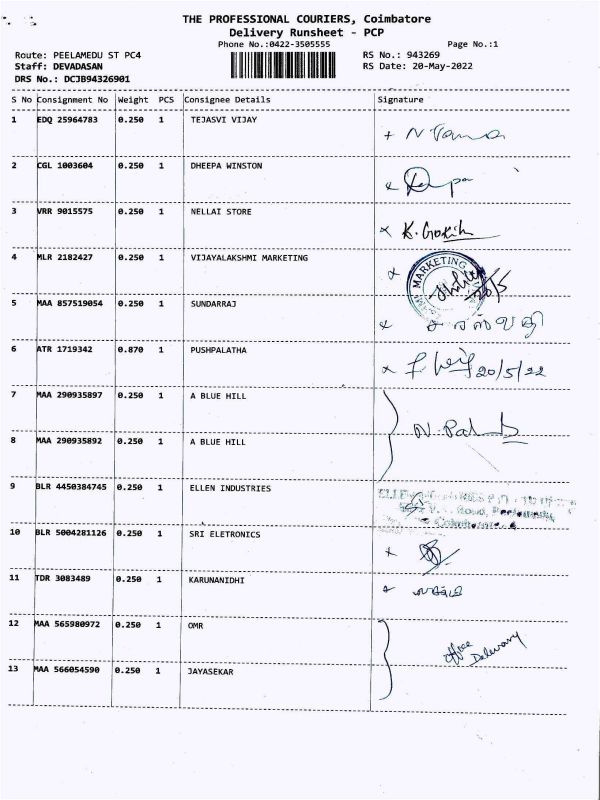 THE PROFESSIONAL COURIERS, Coimbatore
Delivery Runsheet - PCP
Phone No.:0422-3505555 Page No.:1
Route: PEELAMEDU ST PC4 RS No.: 943269
Staff: DEVADASAN RS Date: 20-May-2022
DRS No.: DCJB94326901
S No Consignment No Weight PCS Consignee Details Signature
1 EDQ 25964783 0.250 1 TEJASVI VIJAY
2 CGL 1003604 0.250 1 DHEEPA WINSTON
3 VRR 9015575 0.250 1 NELLAI STORE K. Gokik
4 MLR 2182427 0.250 1 VIJAYALAKSHMI MARKETING MARKETING 20/5
5 MAA 857519054 0.250 1 SUNDARRAJ
6 ATR 1719342 0.870 1 PUSHPALATHA 20/5/22
7 MAA 290935897 0.250 1 A BLUE HILL
8 MAA 290935892 0.250 1 A BLUE HILL
9 BLR 4450384745 0.250 1 ELLEN INDUSTRIES
10 BLR 5004281126 0.250 1 SRI ELETRONICS
11 TDR 3083489 0.250 1 KARUNANIDHI
12 MAA 565980972 0.250 1 OMR
office Delevary
13 MAA 566054590 0.250 1 JAYASEKAR